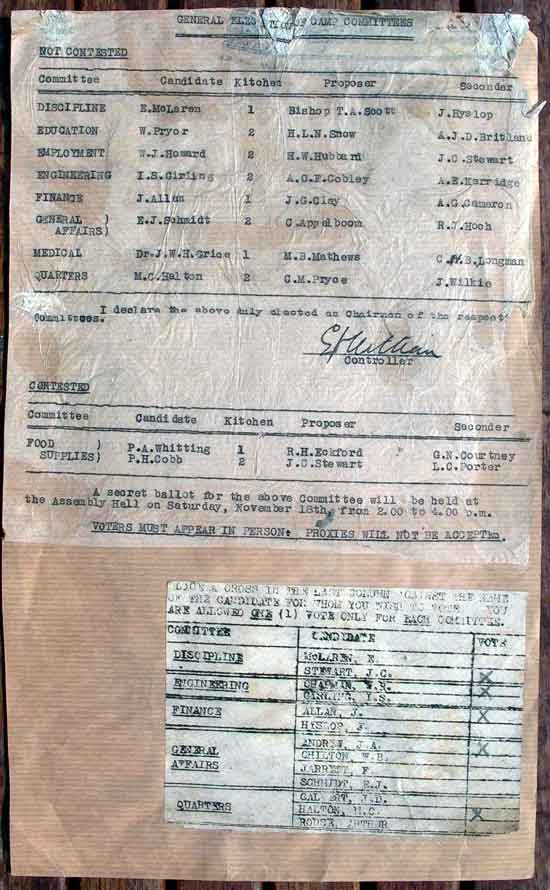 GENERAL ELECTION OF CAMP COMMITTEES
NOT CONTESTED
Committee Candidate Kitchen Proposer Seconder
DISCIPLINE E.McLaren 1 Bishop T.A.Scott J.Hyslop
EDUCATION W.Pryor 2 H.L.N.Snow A.J.D.Britland
EMPLOYMENT W.J.Howard 2 H.W.Hubbard J.C.Stewart
ENGINEERING I.S.Girling 2 A.C.F.Cobley A.E.Kerridge
FINANCE J.Allan 1 J.G.Clay A.G.Cameron
GENERAL ) E.J.Schmidt 2 C.Appelboom R.J.Hoch
AFFAIRS)
MEDICAL Dr.J.W.H.Grice 1 M.B.Mathews C. B.Longman
QUARTERS M.C.Halton 2 C.M.Pryce J.Wilkie
I declare the above duly elected as Chairman of the respect
Committees.
Controller
CONTESTED
Committee Candidate Kitchen Proposer Seconder
FOOD ) P.A.Whitting 1 R.H.Eckford G.N.Courtney
SUPPLIES) P.H.Cobb 2 J.C.Stewart L.C.Porter
A secret ballot for the above Committee will be held at
the Assembly Hall on Saturday, November 18th, from 2.00 to 4.00 p.m.
VOTERS MUST APPEAR IN PERSON: PROXIES WILL NOT BE ACCEPTED.
A CROSS IN THE LAST COLUMN AGAINST THE NAME
OF THE CANDIDATE FOR WHOM YOU WISH TO VOTE YOU
ARE ALLOWED ONE (1) VOTE ONLY FOR EACH COMMITTEE.
COMMITTEE CANDIDATE VOTE
DISCIPLINE McLAREN, E.
STEWART, J.C. X
ENGINEERING CHAPMAN, W.R. X
GIRLING, I.S.
FINANCE ALLAN, J. X
HYSLOP, J.
GENERAL ANDREW, J.A. X
AFFAIRS CHILTON, W.B.
JARRETT, F.
SCHMIDT, E.J.
QUARTERS CALVERT, J.D.
HALTON, M.C. X
ARTHUR